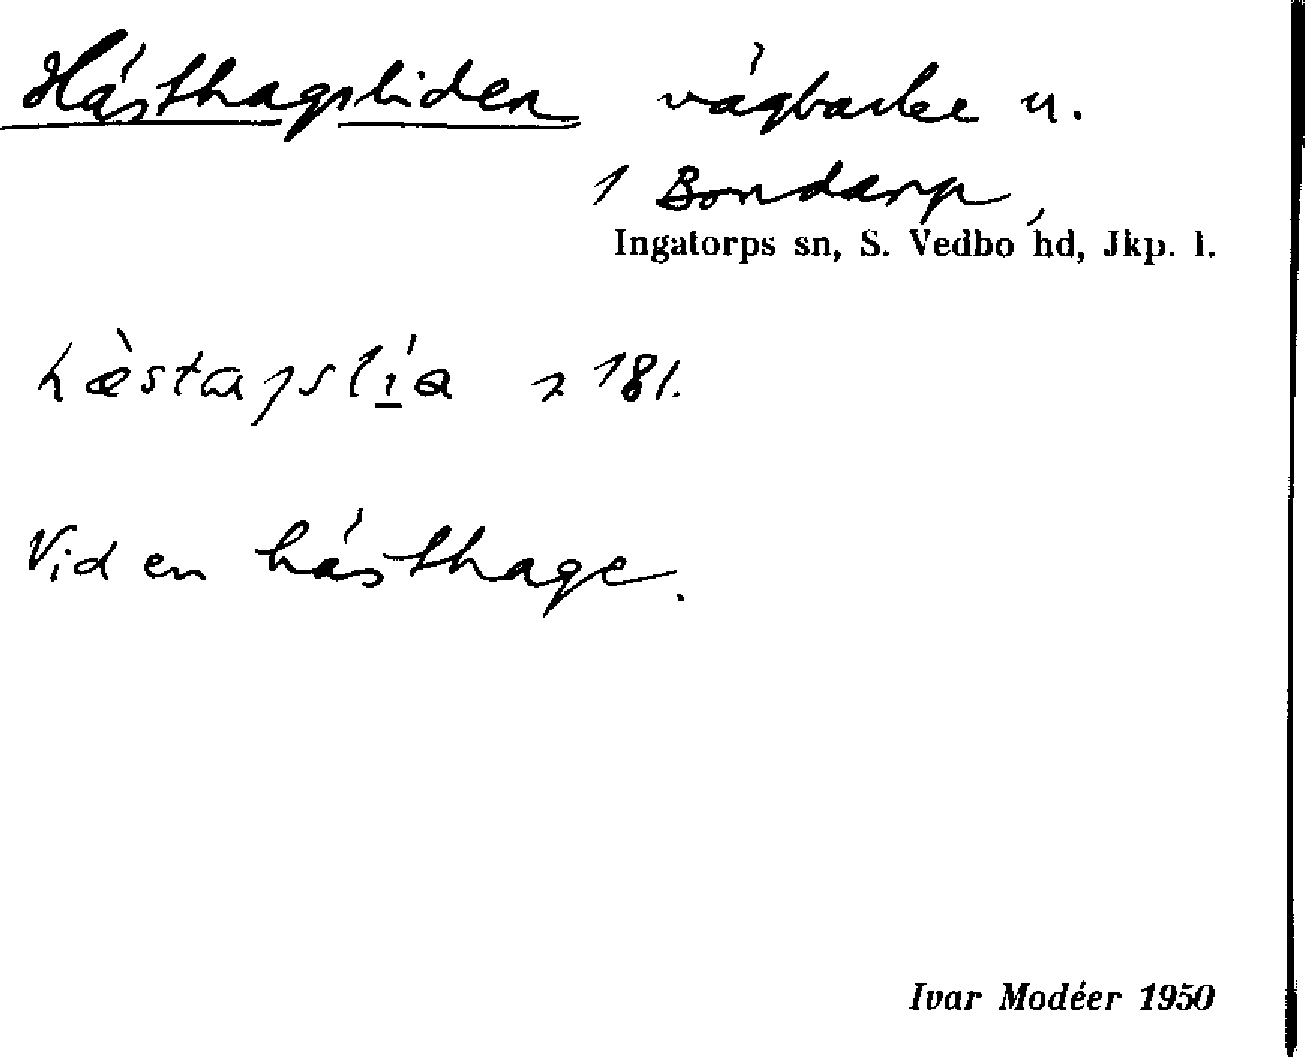 Hästhagsliden vägbacke u.
1 Bondarp,
Ingatorps sn, S. Vedbo hd, Jkp. l.
hæ̀stapslía 2 181.
Vid en hästhage.
Ivar Modéer 1950